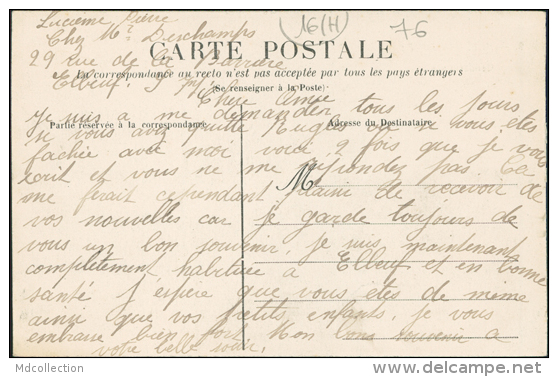 Lucienne
Chez Mr Deschamps
16(H)
76
CARTE POSTALE
29 rue de la Barrière
La correspondance au recto n'est pas acceptée par tous les pays étrangers
Elbeuf.
(Se renseigner à la Poste)
Chère Amie
je suis a me demander tous les jours
Partie réservée à la correspondance
Adresse du Destinataire
si vous avez quitté ou si vous etes
fachée avec moi voici 2 fois que je vous
écrit et vous ne me repondez pas. Ça
M
me ferait cependant plaisir de recevoir de
vos nouvelles car je garde toujours de
vous un bon souvenir, je suis maintenant
complètement habituée a Elbeuf et en bonne
santé j'espère que vous etes de même
ainsi que vos petits enfants, je vous
embrasse bien fort Mon bons souvenir a
votre belle soeur.
Mdcollection
delcampe.net